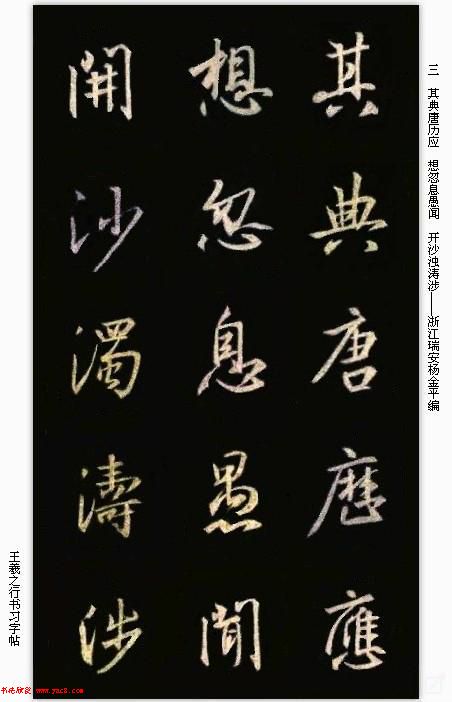 三 其典唐历应 想忽息愚闻 开沙浊涛涉——浙江瑞安杨金平编
其典唐歷應
想忽息愚聞
開沙濁濤涉
王羲之行书习字帖
书法欣赏 www.yac8.com